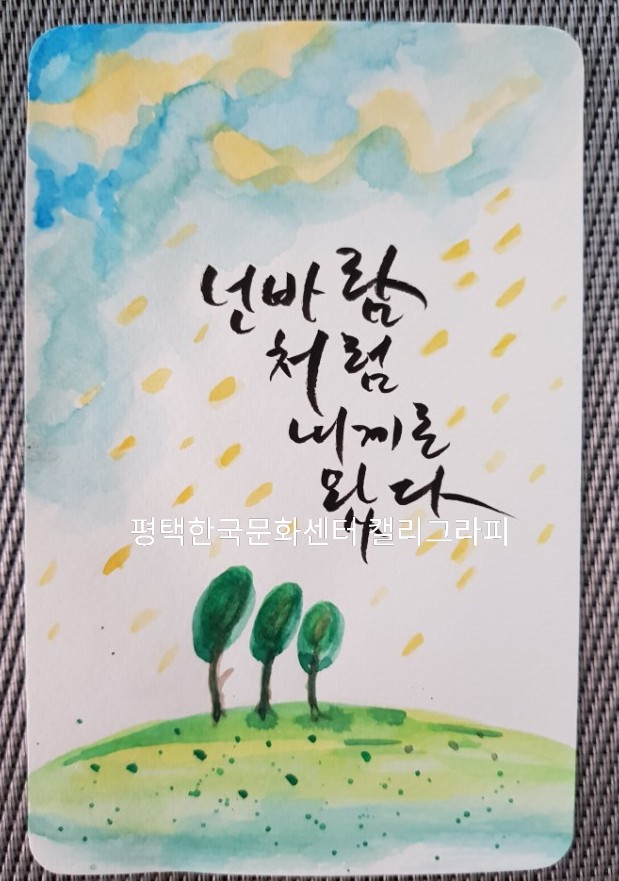 넌바람
처럼
내게로
왔다
평택한국문화센터 캘리그라피